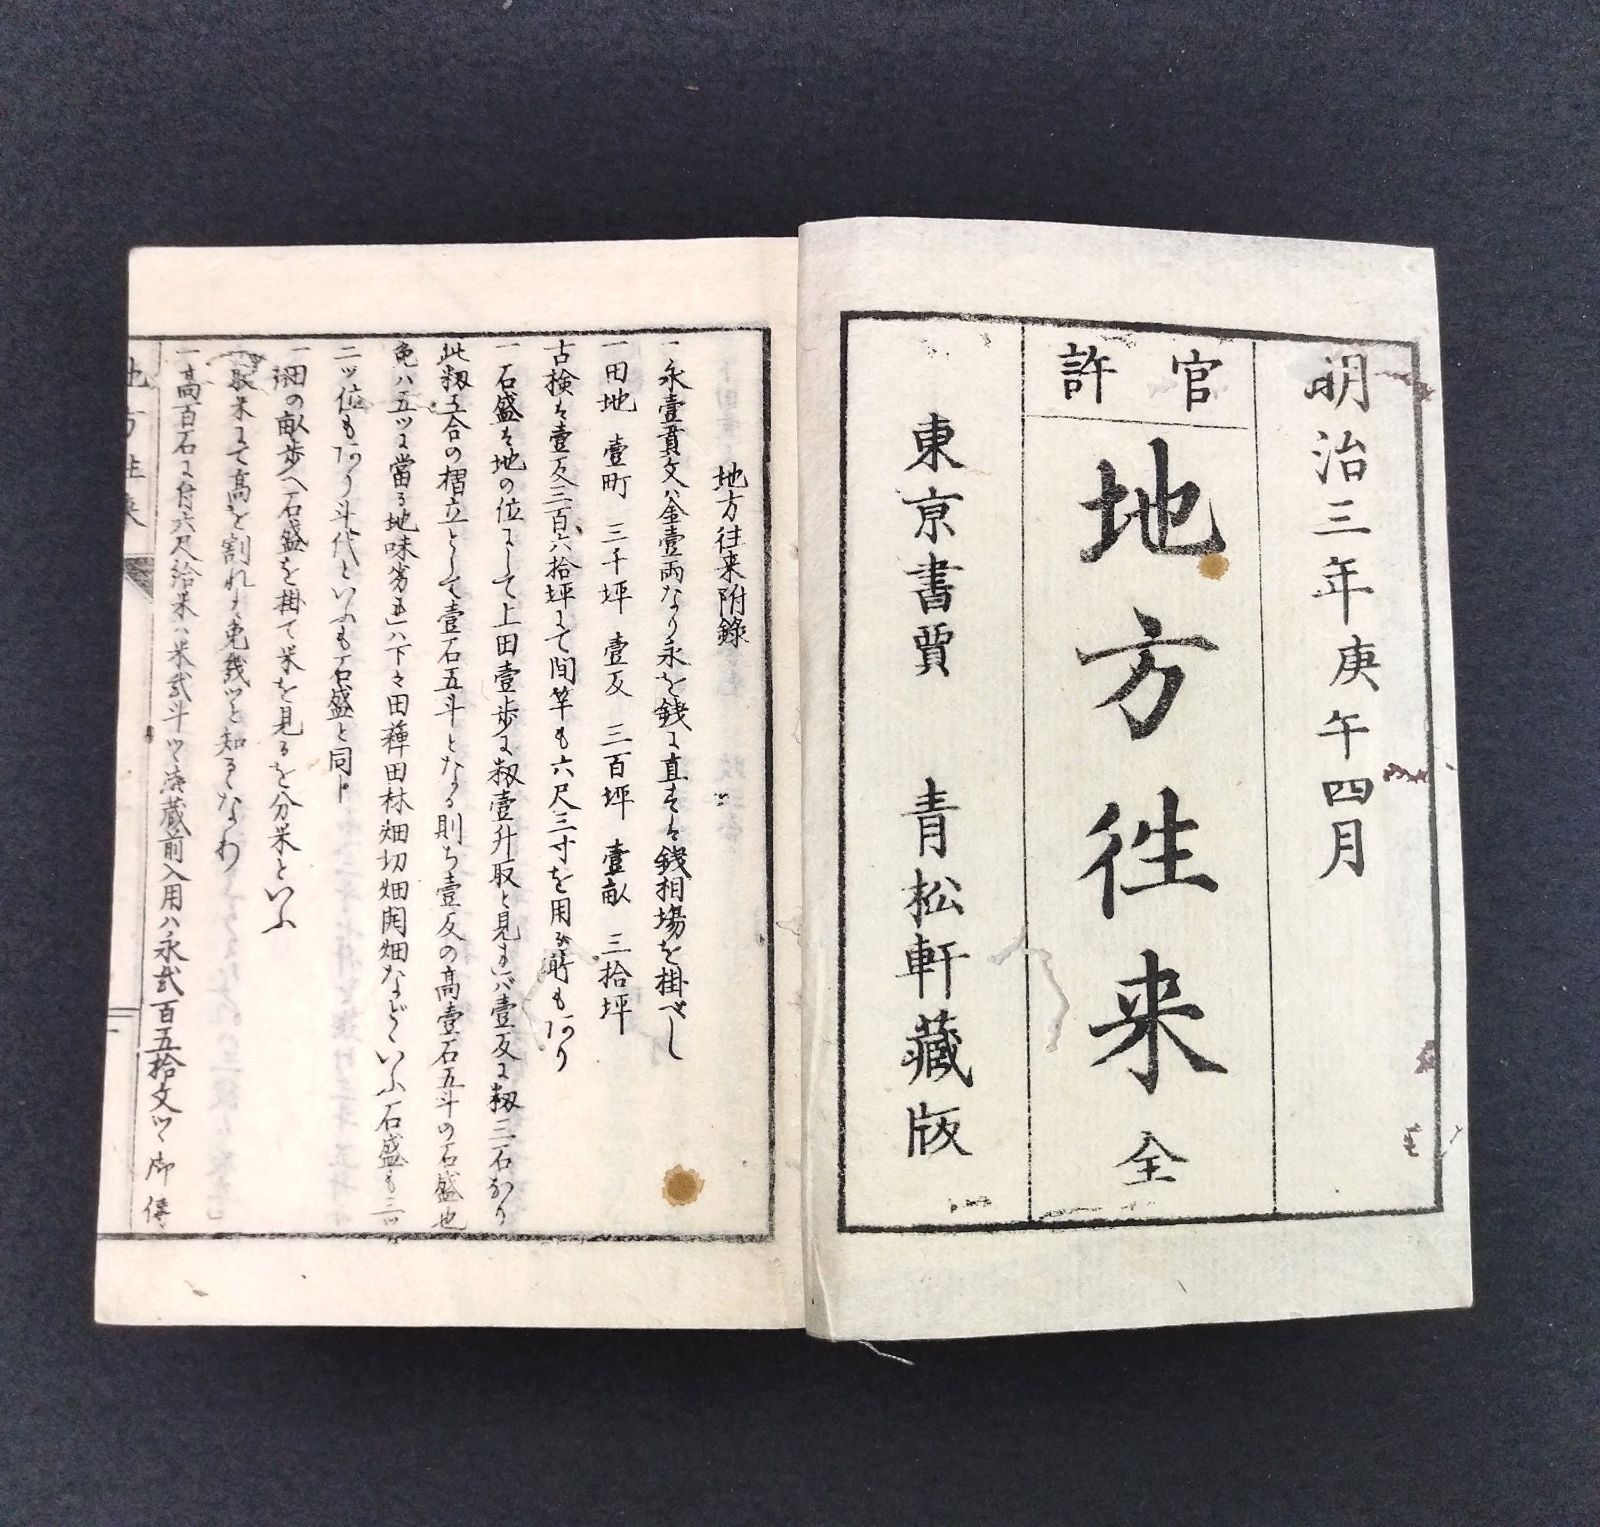 明治三年庚午四月
官許
地方往来全
東京書賈 青松軒藏版
地方往来附錄
一永壹貫文ハ金壹両なり永を錢に直すは錢相場を掛べし
一田地 壹町 三千坪 壹反 三百坪 壹畝 三拾坪
古検は壹反三百六拾坪にて間竿も六尺三寸を用る所もあり
一石盛は地の位にして上田壹歩に籾壹升取と見れバ壹反に籾三石あり
此籾五合の摺立として壹石五斗となる則ち壹反の高壹石五斗の石盛也
免ハ五ツに當る地味劣れハ下々田薄田林畑切畑開畑などゝいふ石盛も三四
二ツ位もあり斗代といふも石盛と同し
一田畑の畝歩へ石盛を掛て米を見るを分米といふ
一取米にて高を割れは免幾ツと知るなり
一高百石に付六尺給米ハ米弐斗ツヽ御蔵前入用ハ永弐百五拾文ツヽ御傳
地方往来